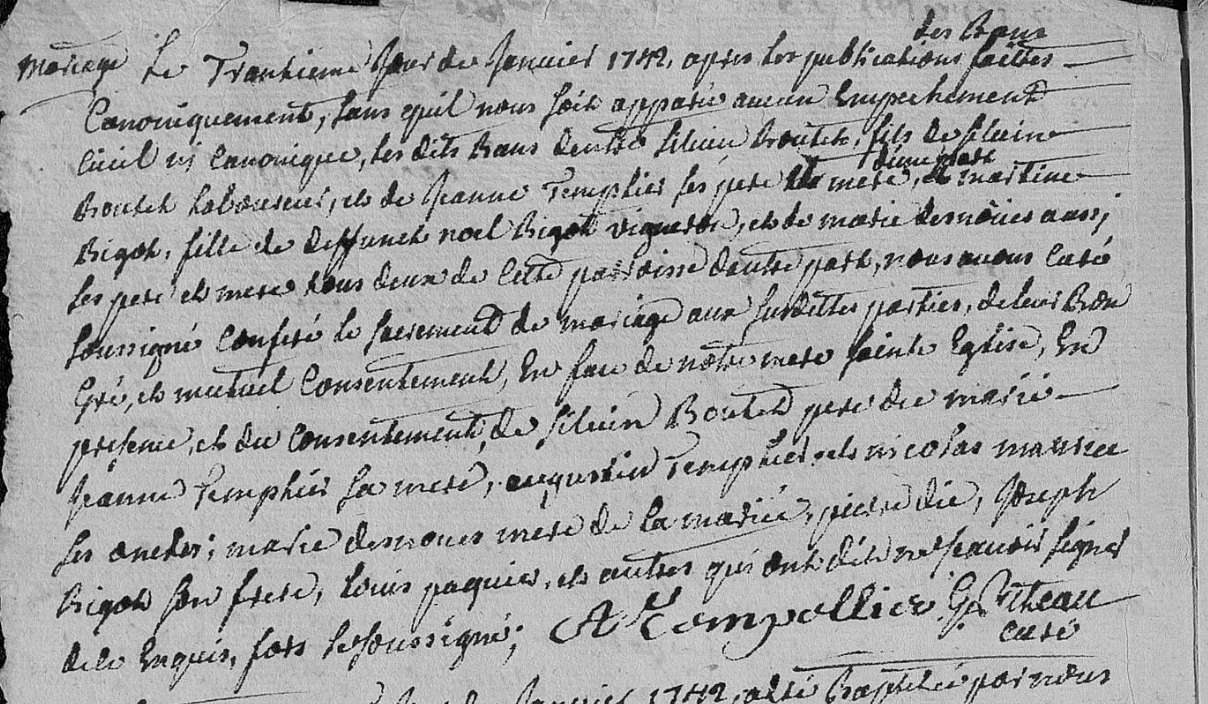 des Bans
mariage Le Trantieme Jour de Janvier 1742, apres les publications faittes
Canoniquement, sans quil nous soit apparu aucun Empechement
Civil ni Canonique, les dits Bans dentre Silvin Boutet, fils de Silvin
d'une part
Boutet laboureur, et de Jeanne Templier ses pere et mere, et martine
Bigot, fille de deffunct noel Bigot vigneron, et de marie desnoües aussi
ses pere et mere tous deux de Cette parroisse dautre part, nous avons Curé
soussigné Conferé le sacrement de mariage aux susdittes parties, de leur Bon
Gré, et mutuel Consentement, En face de notre mere sainte Eglise, En
presence, et du Consentement, de Silvin Boutet pere du marié
Jeanne Templier sa mere, augustin Templier, et nicolas
ses oncles; marie desnoues mere de la mariée, pierre die, Joseph
Bigot son frere, Louis paquier, et autres qui ont dit ne scavoir signer
de ce Enquis, fors le soussigné; A Tempellier G. Potheau
curé
Janvier 1742, a été Baptisé par nous